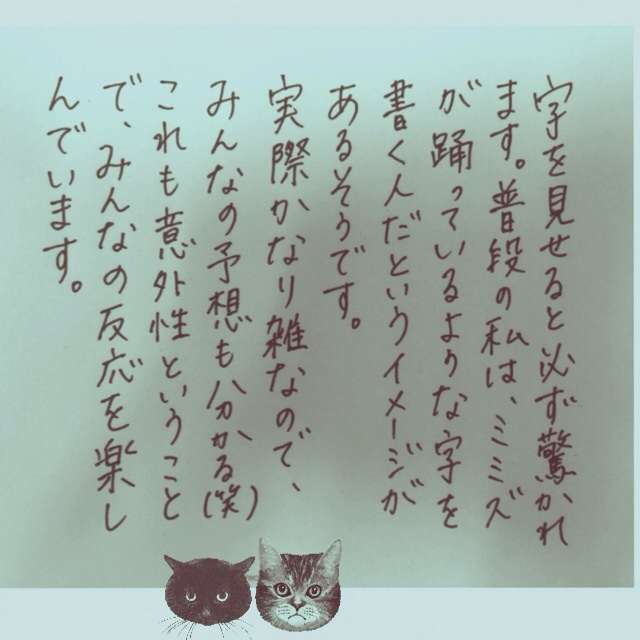 字を見せると必ず驚かれ
ます。普段の私は、ミミズ
が踊っているような字を
書く人だというイメージが
あるそうです。
実際かなり雑なので、
みんなの予想も分かる(笑)
これも意外性ということ
で、みんなの反応を楽し
んでいます。